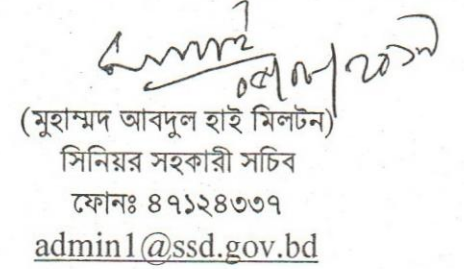 (মুহাম্মদ আবদুল হাই মিলটন)
সিনিয়র সহকারী সচিব
ফোনঃ ৪৭১২৪৩৩৭
admin1@ssd.gov.bd